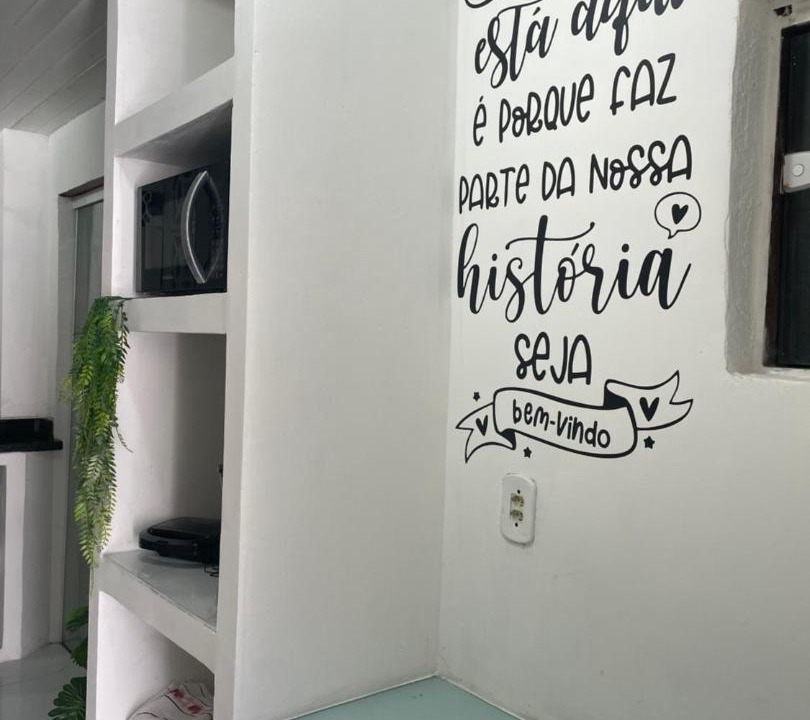 está aqui
é PORQUE FAZ
PARTE DA NOSSA
história
SEJA
bem-vindo